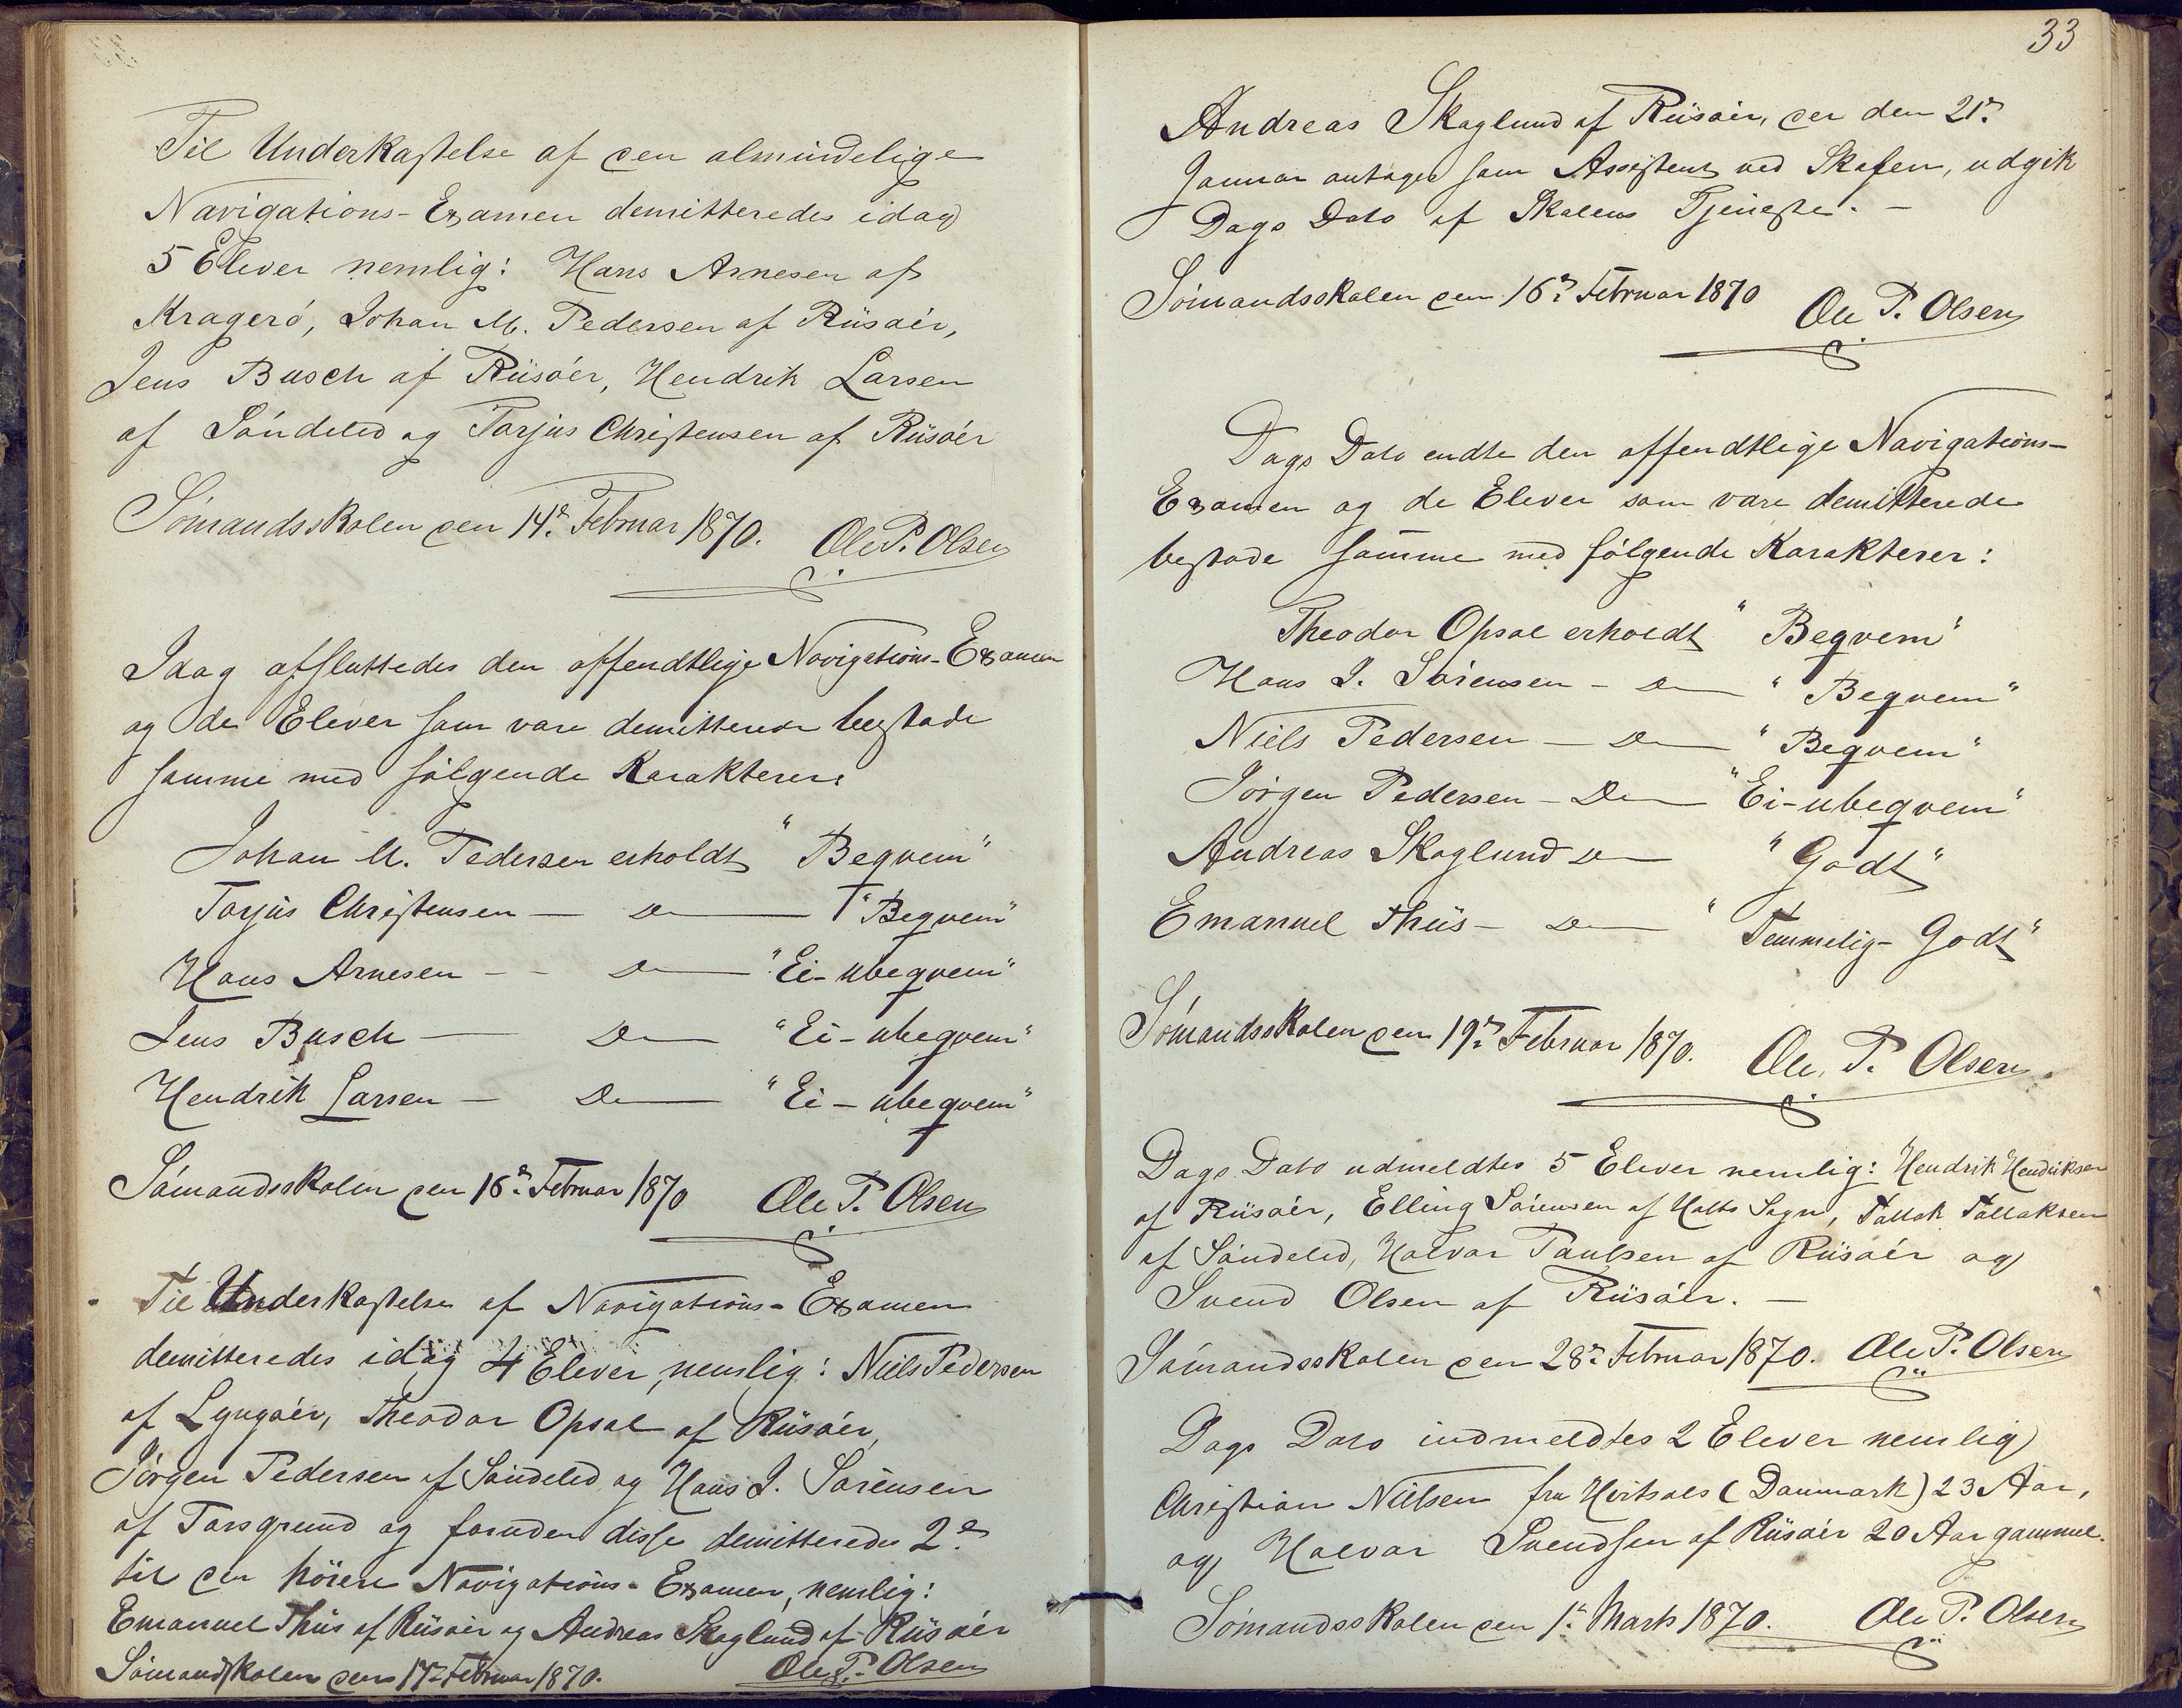 Til Underkastelse af den almindelige
Navigations-Examen demitteredes idag
5 Elever nemlig: Hans Arnesen af
Kragerö, Johan M. Pedersen af Riisøer,
Jens Busch af Riisøer, Hendrik Larsen
af Söndeled og Torjus Christensen af Riisøer
Sömandsskolen den 14de Februar 1870. Ole P. Olsen
Idag afsluttedes den offendtlige Navigations-Examen
og de Elever som vare demitterede bestode
samme med følgende Karakterer:
Johan M. Pedersen erholdt "Beqvem"
Torjus Christensen — Do — "Beqvem"
Hans Arnesen - - Do — "Ei-ubeqvem"
Jens Busch — Do — "Ei-ubeqvem"
Hendrik Larsen — Do — "Ei-ubeqvem"
Sömandsskolen den 16de Februar 1870 Ole P. Olsen
Til Underkastelse af Navigations-Examen
demitteredes idag 4 Elever, nemlig: Niels Pedersen
af Lyngøer, Theodor Opsal af Riisøer,
Jørgen Pedersen af Söndeled og Hans J. Sörensen
af Porsgrund og foruden disse demitteredes 2de
til den höiere Navigations-Examen, nemlig:
Emanuel Thiis af Riisøer og Andreas Skoglund af Riisøer
Sömandsskolen den 17de Februar 1870. Ole P. Olsen
33
Andreas Skoglund af Riisøer, der den 21de
Januar antoges som Assistent ved Skolen, udgik
Dags Dato af Skolens Tjeneste. —
Sömandsskolen den 16de Februar 1870 Ole P. Olsen
Dags Dato endte den offendtlige Navigations-
Examen og de Elever som vare demitterede
bestode samme med følgende Karakterer:
Theodor Opsal erholdt "Beqvem"
Hans J. Sörensen - Do — "Beqvem"
Niels Pedersen — Do — "Beqvem"
Jörgen Pedersen - Do — "Ei-ubeqvem"
Andreas Skoglund Do — "Godt"
Emanuel Thiis - Do — "Temmelig-Godt"
Sömandsskolen den 19de Februar 1870. Ole P. Olsen
Dags Dato udmeldtes 5 Elever nemlig: Hendrik Hendriksen
af Riisøer, Elling Sörensen af Holts Sogn, Tallak Tallaksen
af Söndeled, Halvor Paulsen af Riisøer og
Svend Olsen af Riisøer. —
Sömandsskolen den 28de Februar 1870. Ole P. Olsen
Dags Dato indmeldtes 2 Elever nemlig
Christian Nielsen fra Hirtsals (Danmark) 23 Aar,
og Halvor Svendsen af Riisøer 20 Aar gammel.
Sömandsskolen den 1ste Marts 1870. Ole P. Olsen